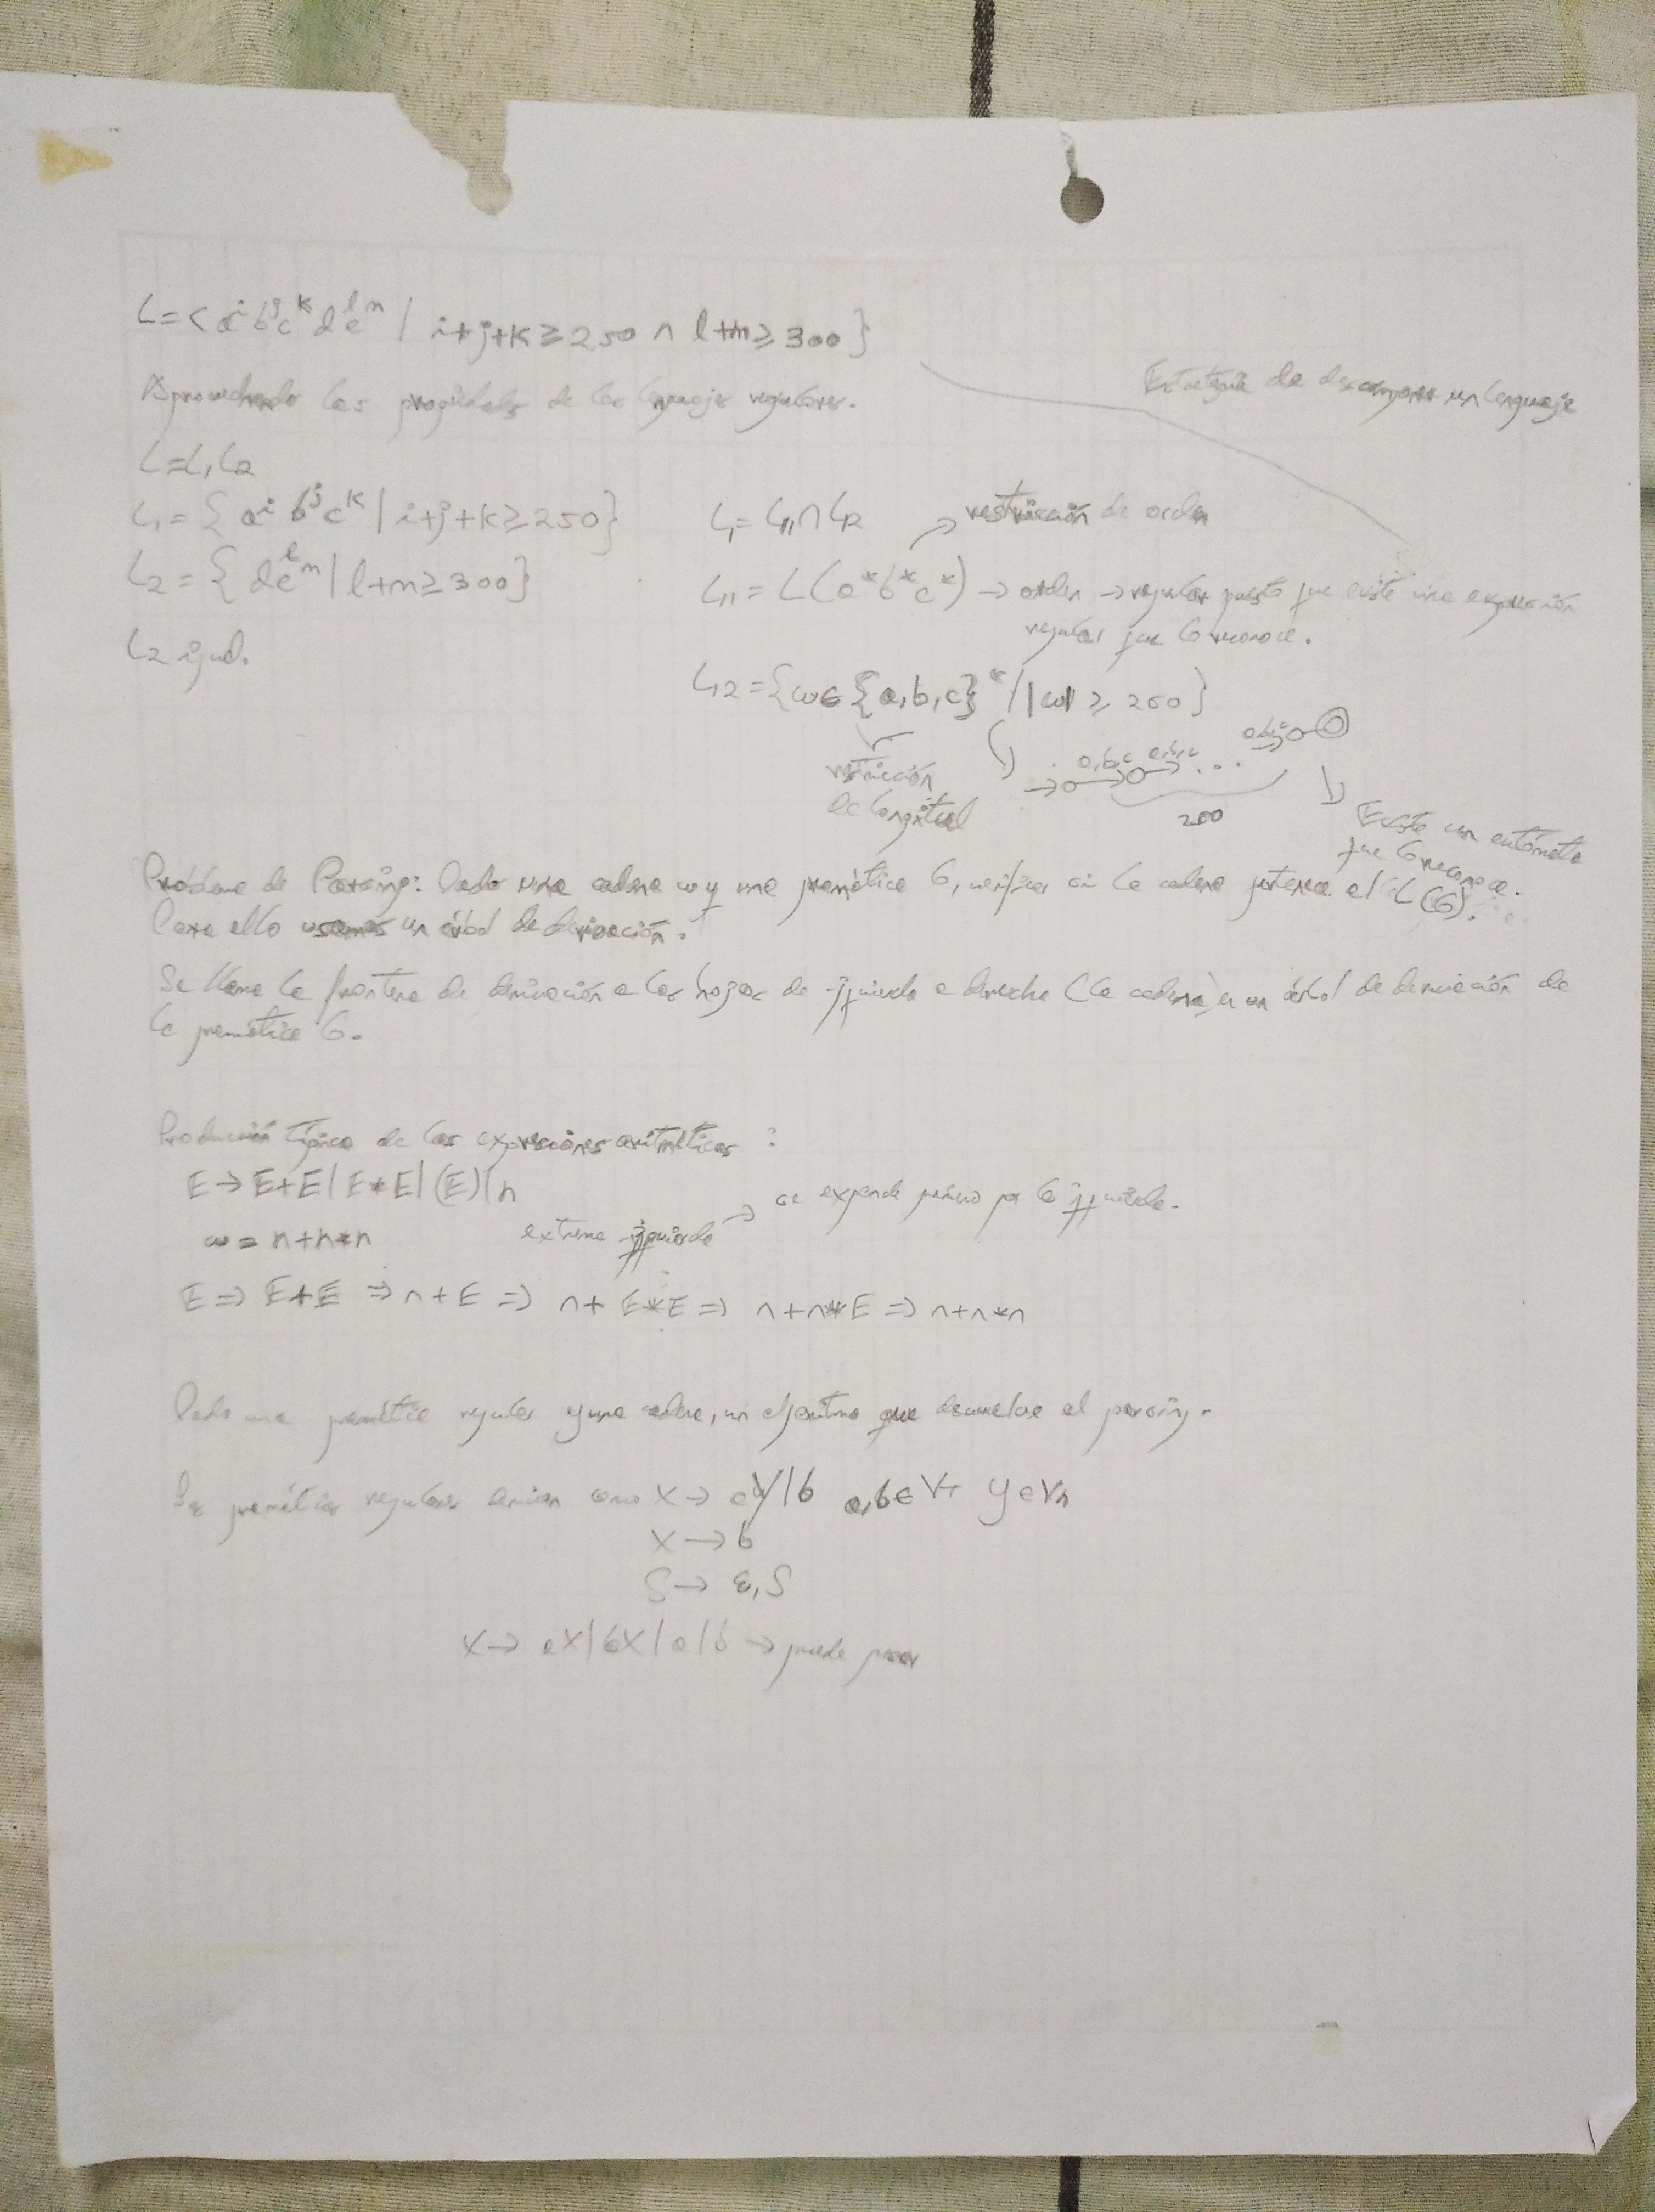 L = < a^i b^j c^k d^l e^m | i+j+k ≥ 250 ∧ l+m ≥ 300 }
Aprovechando las propiedades de los lenguajes regulares.
Estrategia de descomponer un lenguaje
L = L₁L₂
L₁ = { a^i b^j c^k | i+j+k ≥ 250 }
L₂ = { d^l e^m | l+m ≥ 300 }
L₂ igual.
L₁ = L₁₁ ∩ L₁₂
restricción de orden
L₁₁ = L(a*b*c*) → orden → regular puesto que existe una expresión
regular que lo reconoce.
L₁₂ = { ω ∈ {a,b,c}* / |ω| ≥ 250 }
restricción
de longitud
a,b,c a,b,c ... a,b,c
Existe un autómata
que lo reconoce.
Problema de Parsing: Dada una cadena ω y una gramática G, verificar si la cadena pertenece al L(G).
Para ello usamos un árbol de derivación.
Se llama la frontera de derivación a las hojas de izquierda a derecha (la cadena) en un árbol de derivación de
la gramática G.
Producción típica de las expresiones aritméticas :
E → E+E | E*E | (E) | n
ω = n+n*n
extrema izquierda → se expande primero por la izquierda.
E ⇒ E+E ⇒ n+E ⇒ n+E*E ⇒ n+n*E ⇒ n+n*n
Dada una gramática regular y una cadena, un algoritmo que devuelve el parsing.
Las gramáticas regulares derivan como X → aY | b a,b ∈ VT Y ∈ Vn
X → b
S → ε, S
X → aX | bX | a | b → puede pasar